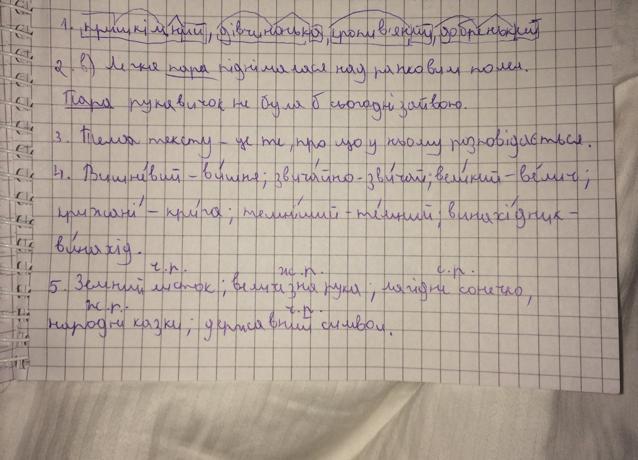 1. кришкімний, дівчинонька, кропив'яний, добренький
2. в) Легка пара піднімалася над ранковим полем.
Пара рукавичок не була б сьогодні зайвою.
3. Тема тексту – це те, про що у ньому розповідається.
4. Вишне́вий – ви́шня; звича́йно – зви́чай; вели́кий – ве́лич;
крижані́ – кри́га; темні́ший – те́мний; винахі́дник –
ви́нахід.
ч.р. ж.р. с.р.
5. Земний листок; величезна рука; лагідне сонечко,
ж.р. ч.р.
народні казки; державний символ.